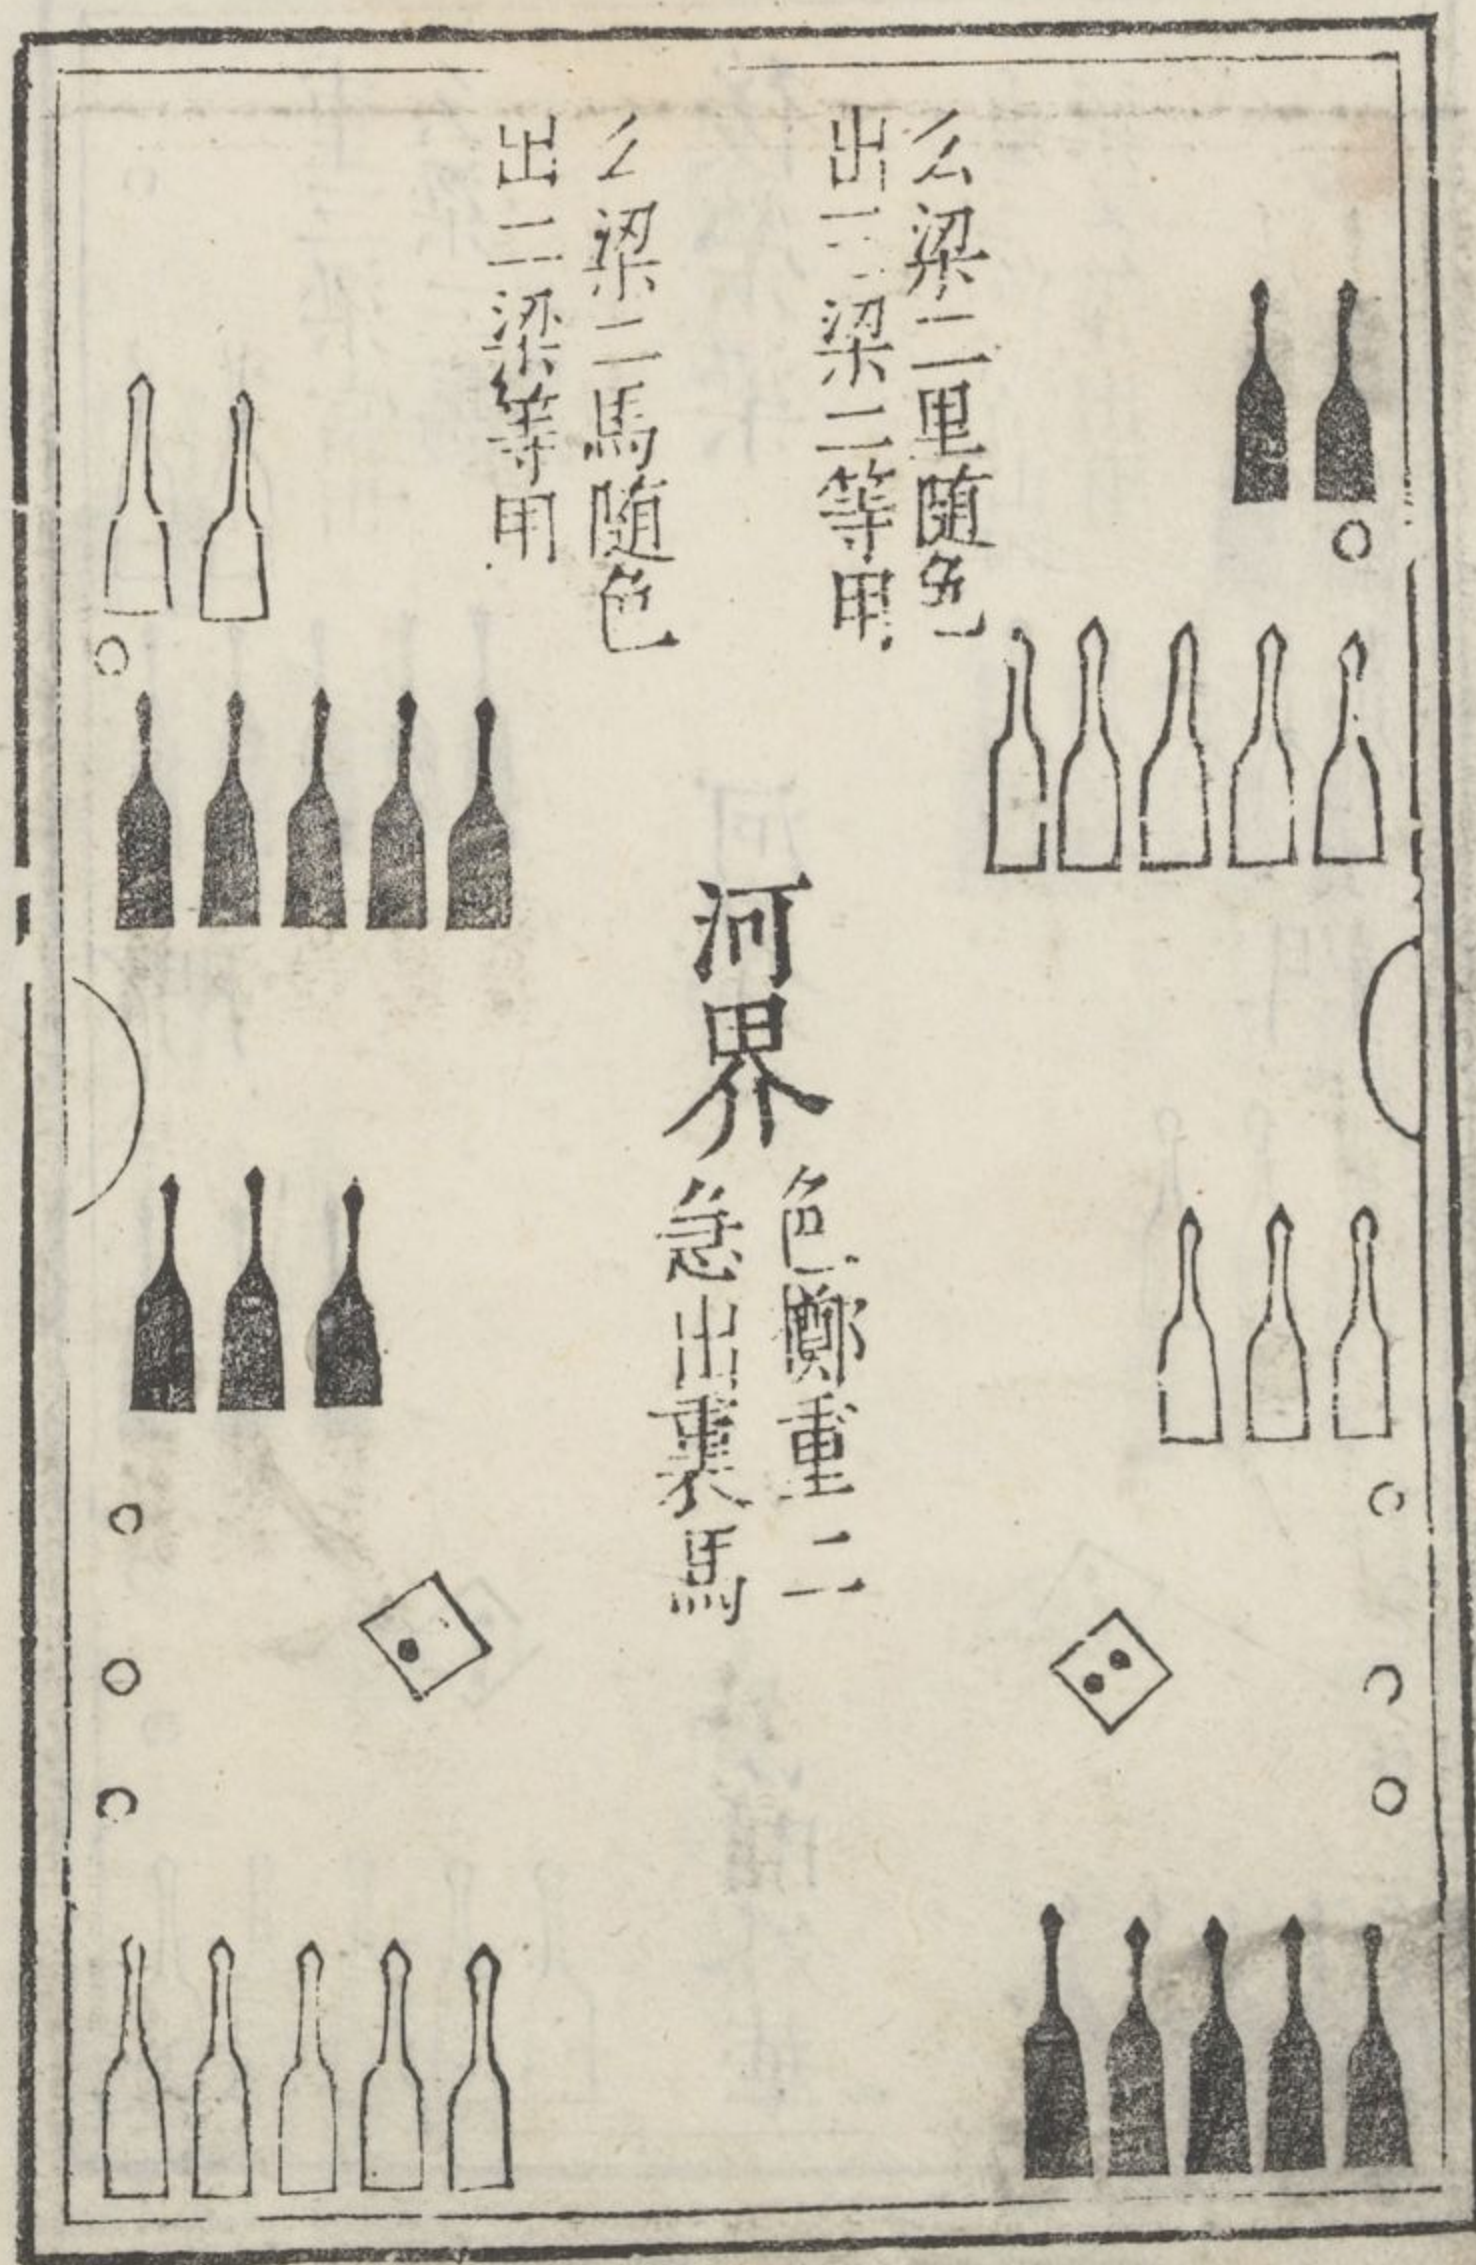 么梁二里随色
出二梁二等用
么梁二馬随色
出二梁等用
河界
色鄭重二
急出裏馬